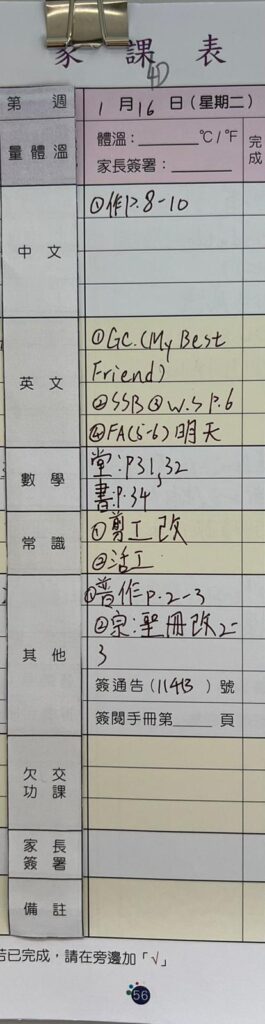 家課表
4D
第 週 1月16日(星期二)
量體溫 體溫:______℃/℉ 完成
家長簽署:______
中文 ①作P.8-10
英文 ①GC.(My Best
Friend)
②SSB ③W.S P.6
④FA(5-6)明天
數學 堂:P31,32
書:P.34
常識 ①剪工改
②活工
其他 ①普作P.2-3
②宗:聖冊改2-
3
簽通告(114B)號
簽閱手冊第______頁
欠交功課
家長簽署
備註
若已完成,請在旁邊加「√」
56